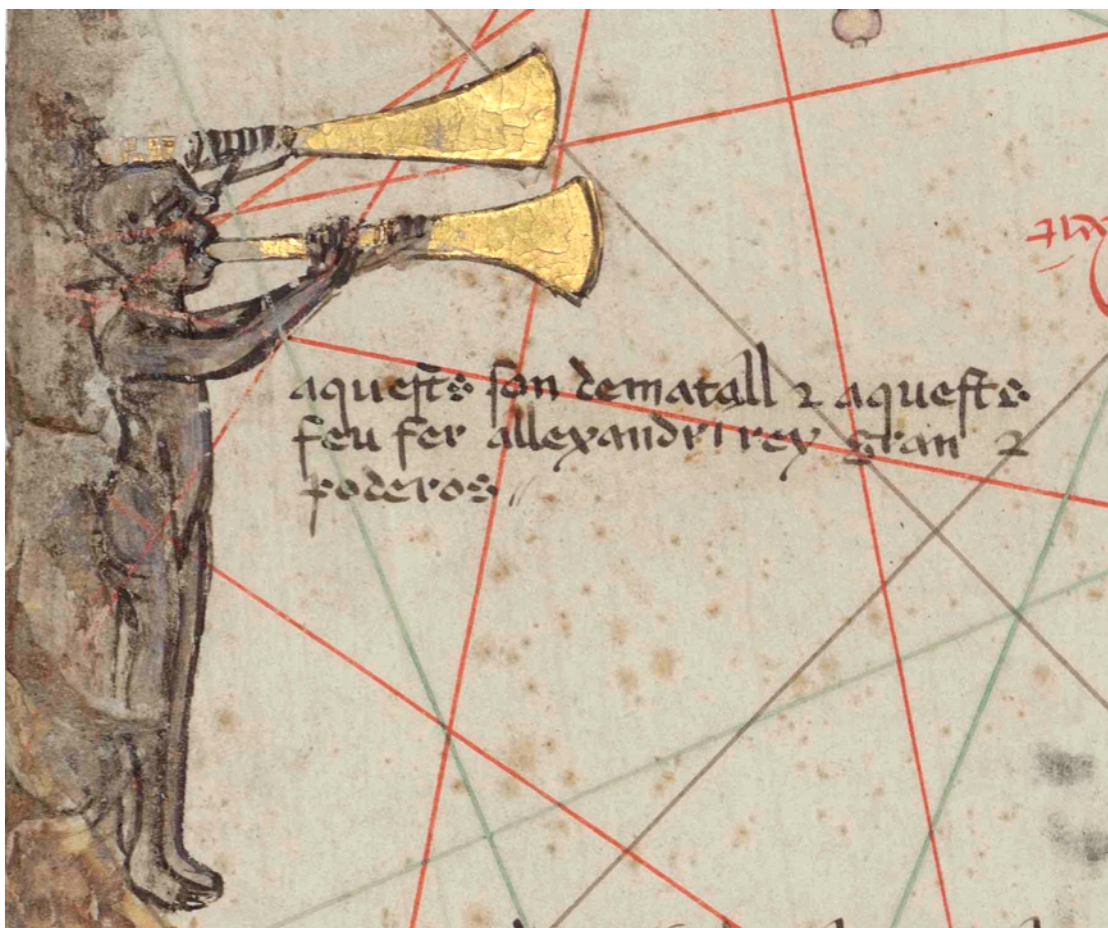 aquests son de matall ⁊ aquests
feu fer allexandri rey gran ⁊
poderos